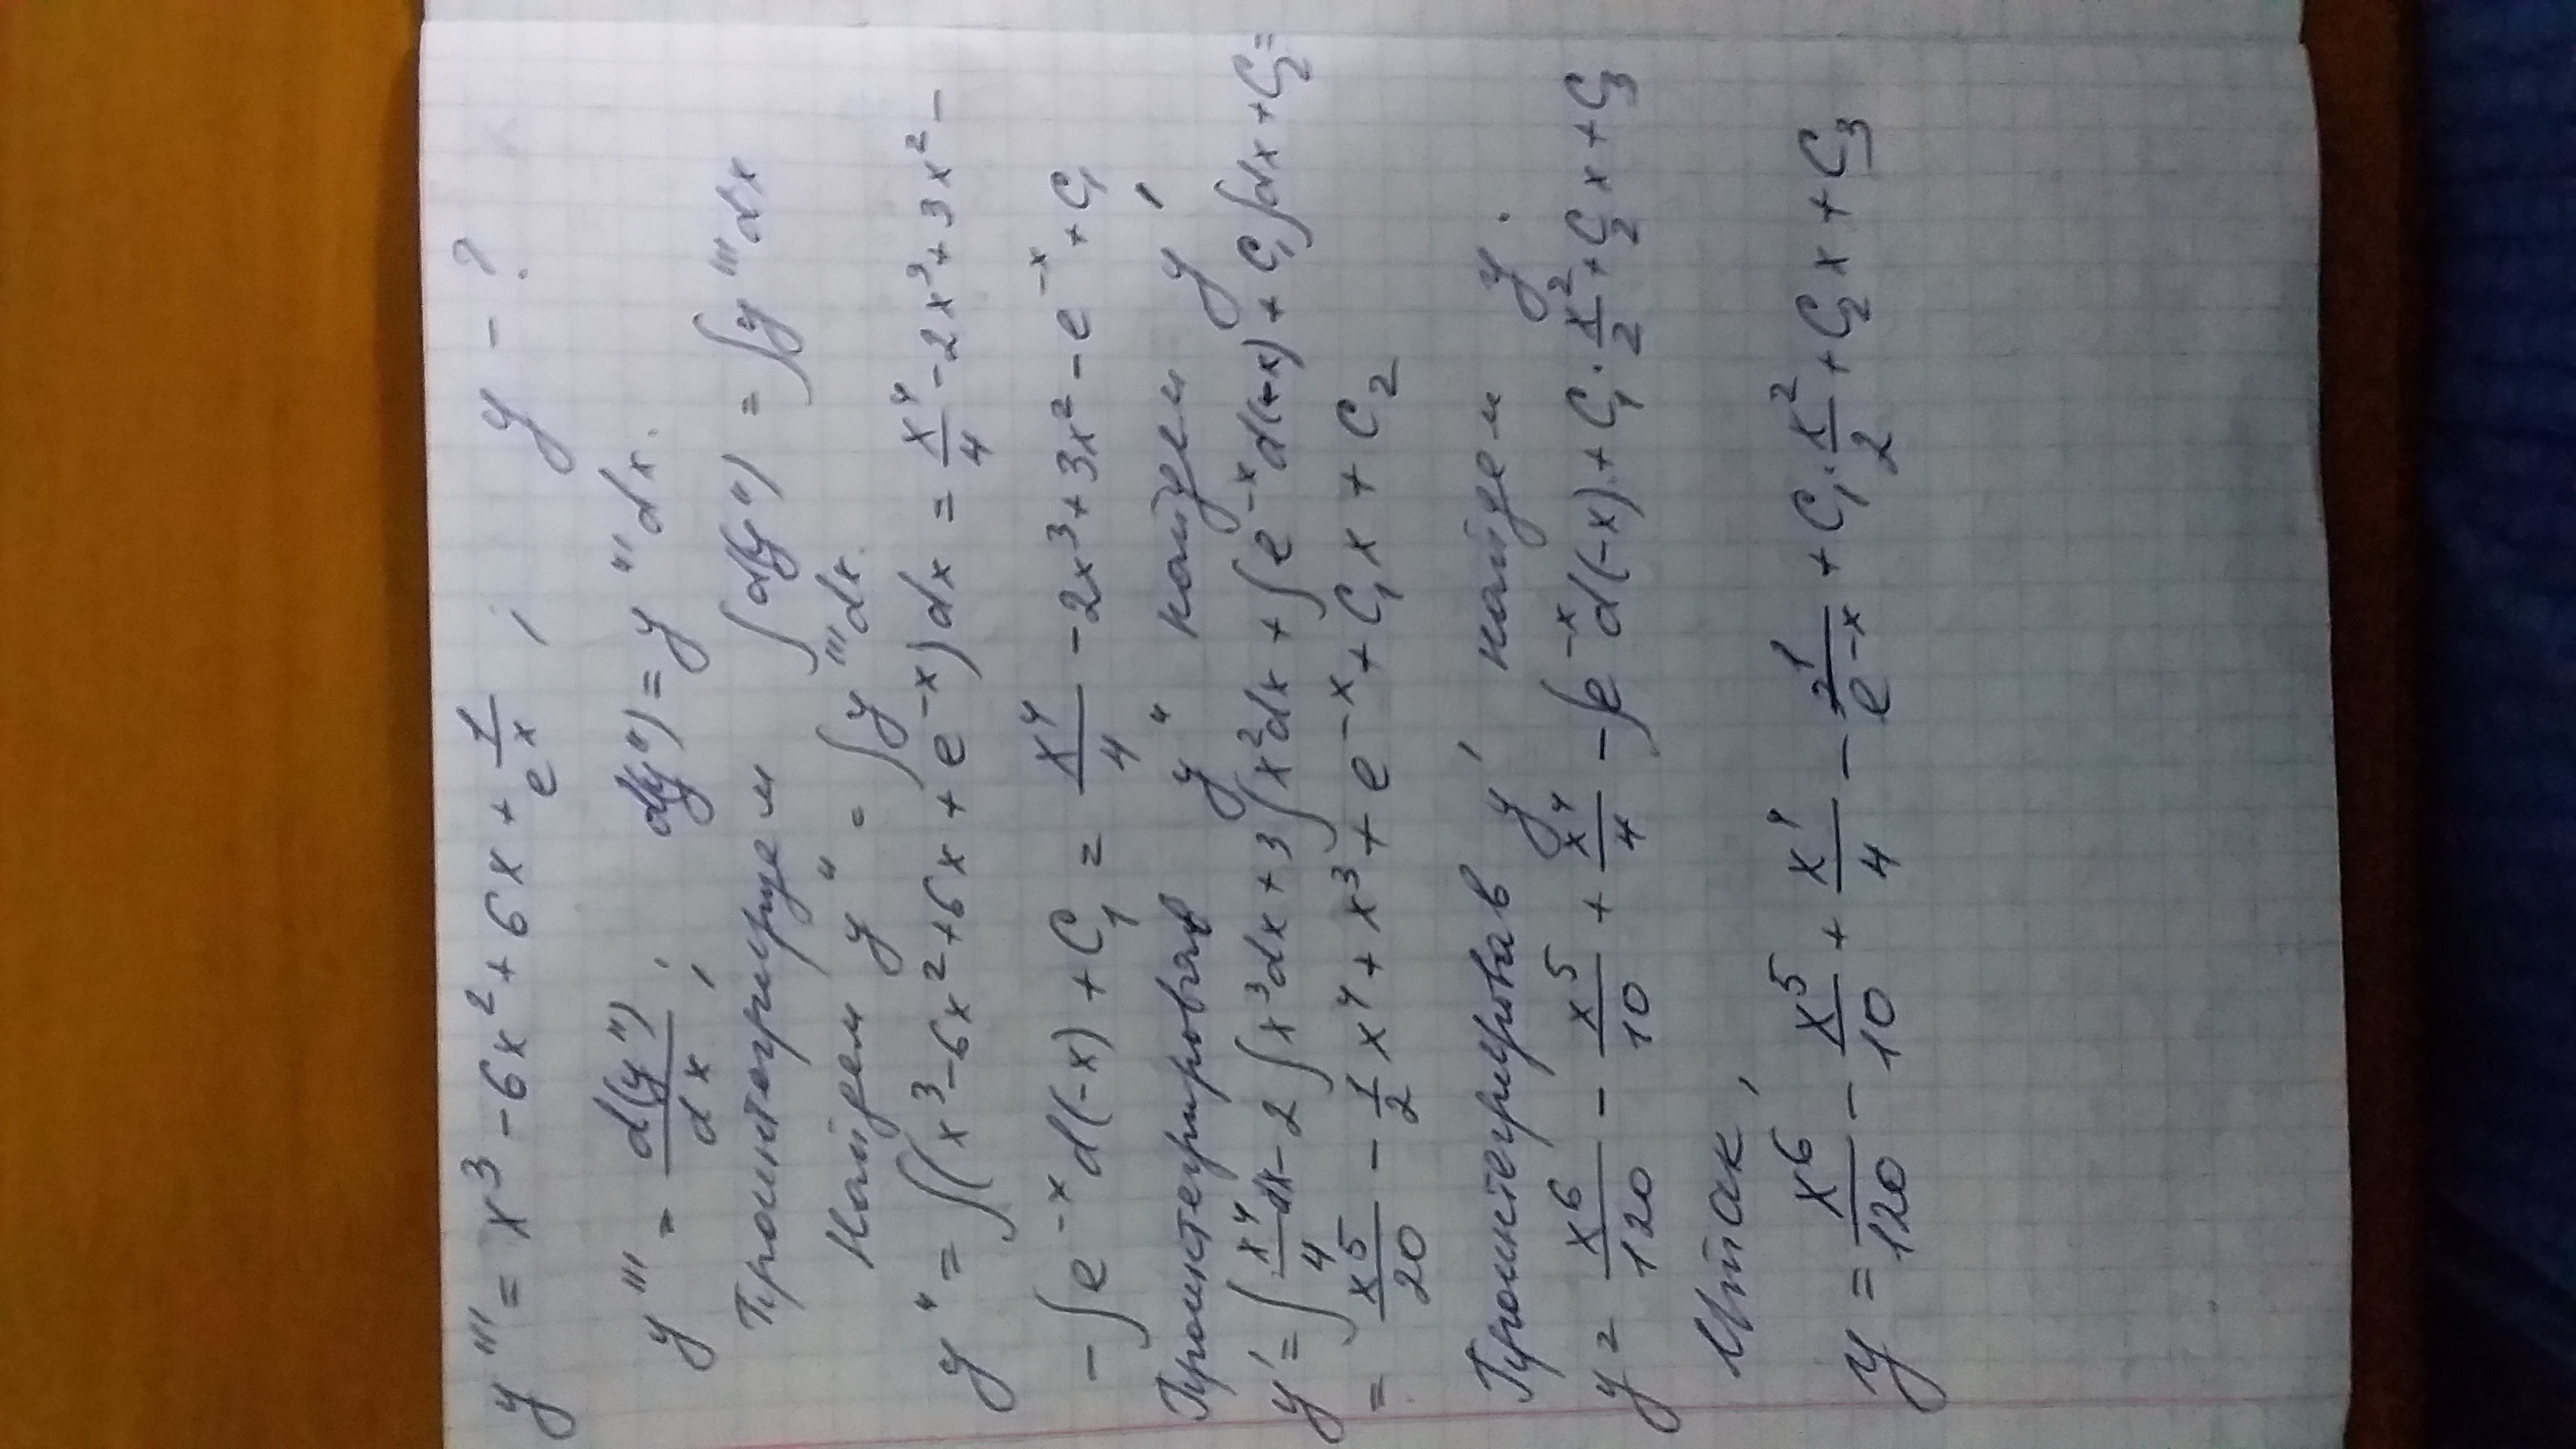 y''' = x³ - 6x² + 6x + 1/eˣ ; y - ?
y''' = d(y'')/dx ; d(y'') = y''' dx.
Проинтегрируем ∫d(y'') = ∫y''' dx
Найдем y'' = ∫y''' dx.
y'' = ∫(x³ - 6x² + 6x + e⁻ˣ)dx = x⁴/4 - 2x³ + 3x² -
- ∫e⁻ˣ d(-x) + C₁ = x⁴/4 - 2x³ + 3x² - e⁻ˣ + C₁
Проинтегрировав y'' найдем y'
y' = ∫x⁴/4 dx - 2∫x³dx + 3∫x²dx + ∫e⁻ˣd(-x) + C₁∫dx + C₂ =
= x⁵/20 - 1/2 x⁴ + x³ + e⁻ˣ + C₁x + C₂
Проинтегрировав y' найдем y.
y = x⁶/120 - x⁵/10 + x⁴/4 - ∫e⁻ˣd(-x) + C₁·x²/2 + C₂x + C₃
Итак,
y = x⁶/120 - x⁵/10 + x⁴/4 - 1/e⁻ˣ + C₁·x²/2 + C₂x + C₃